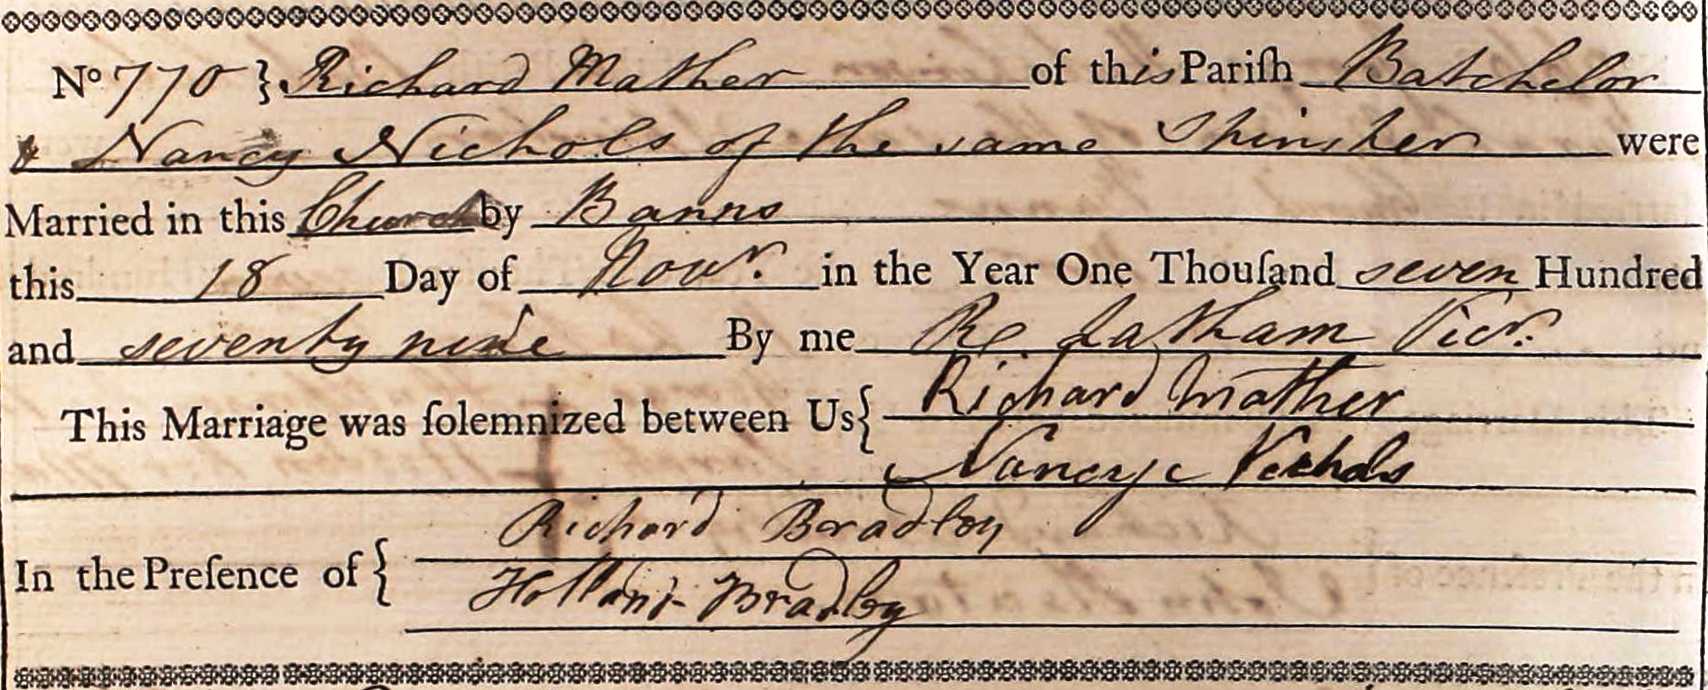 No 770 } Richard Mather of this Pariſh Batchelor
& Nancy Nichols of the same Spinster were
Married in this Church by Banns
this 18 Day of Novr. in the Year One Thouſand seven Hundred
and seventy nine By me Re Latham Vicr.
This Marriage was ſolemnized between Us { Richard Mather
Nancye Nichols
Richard Bradley
In the Preſence of {
Holland Bradley